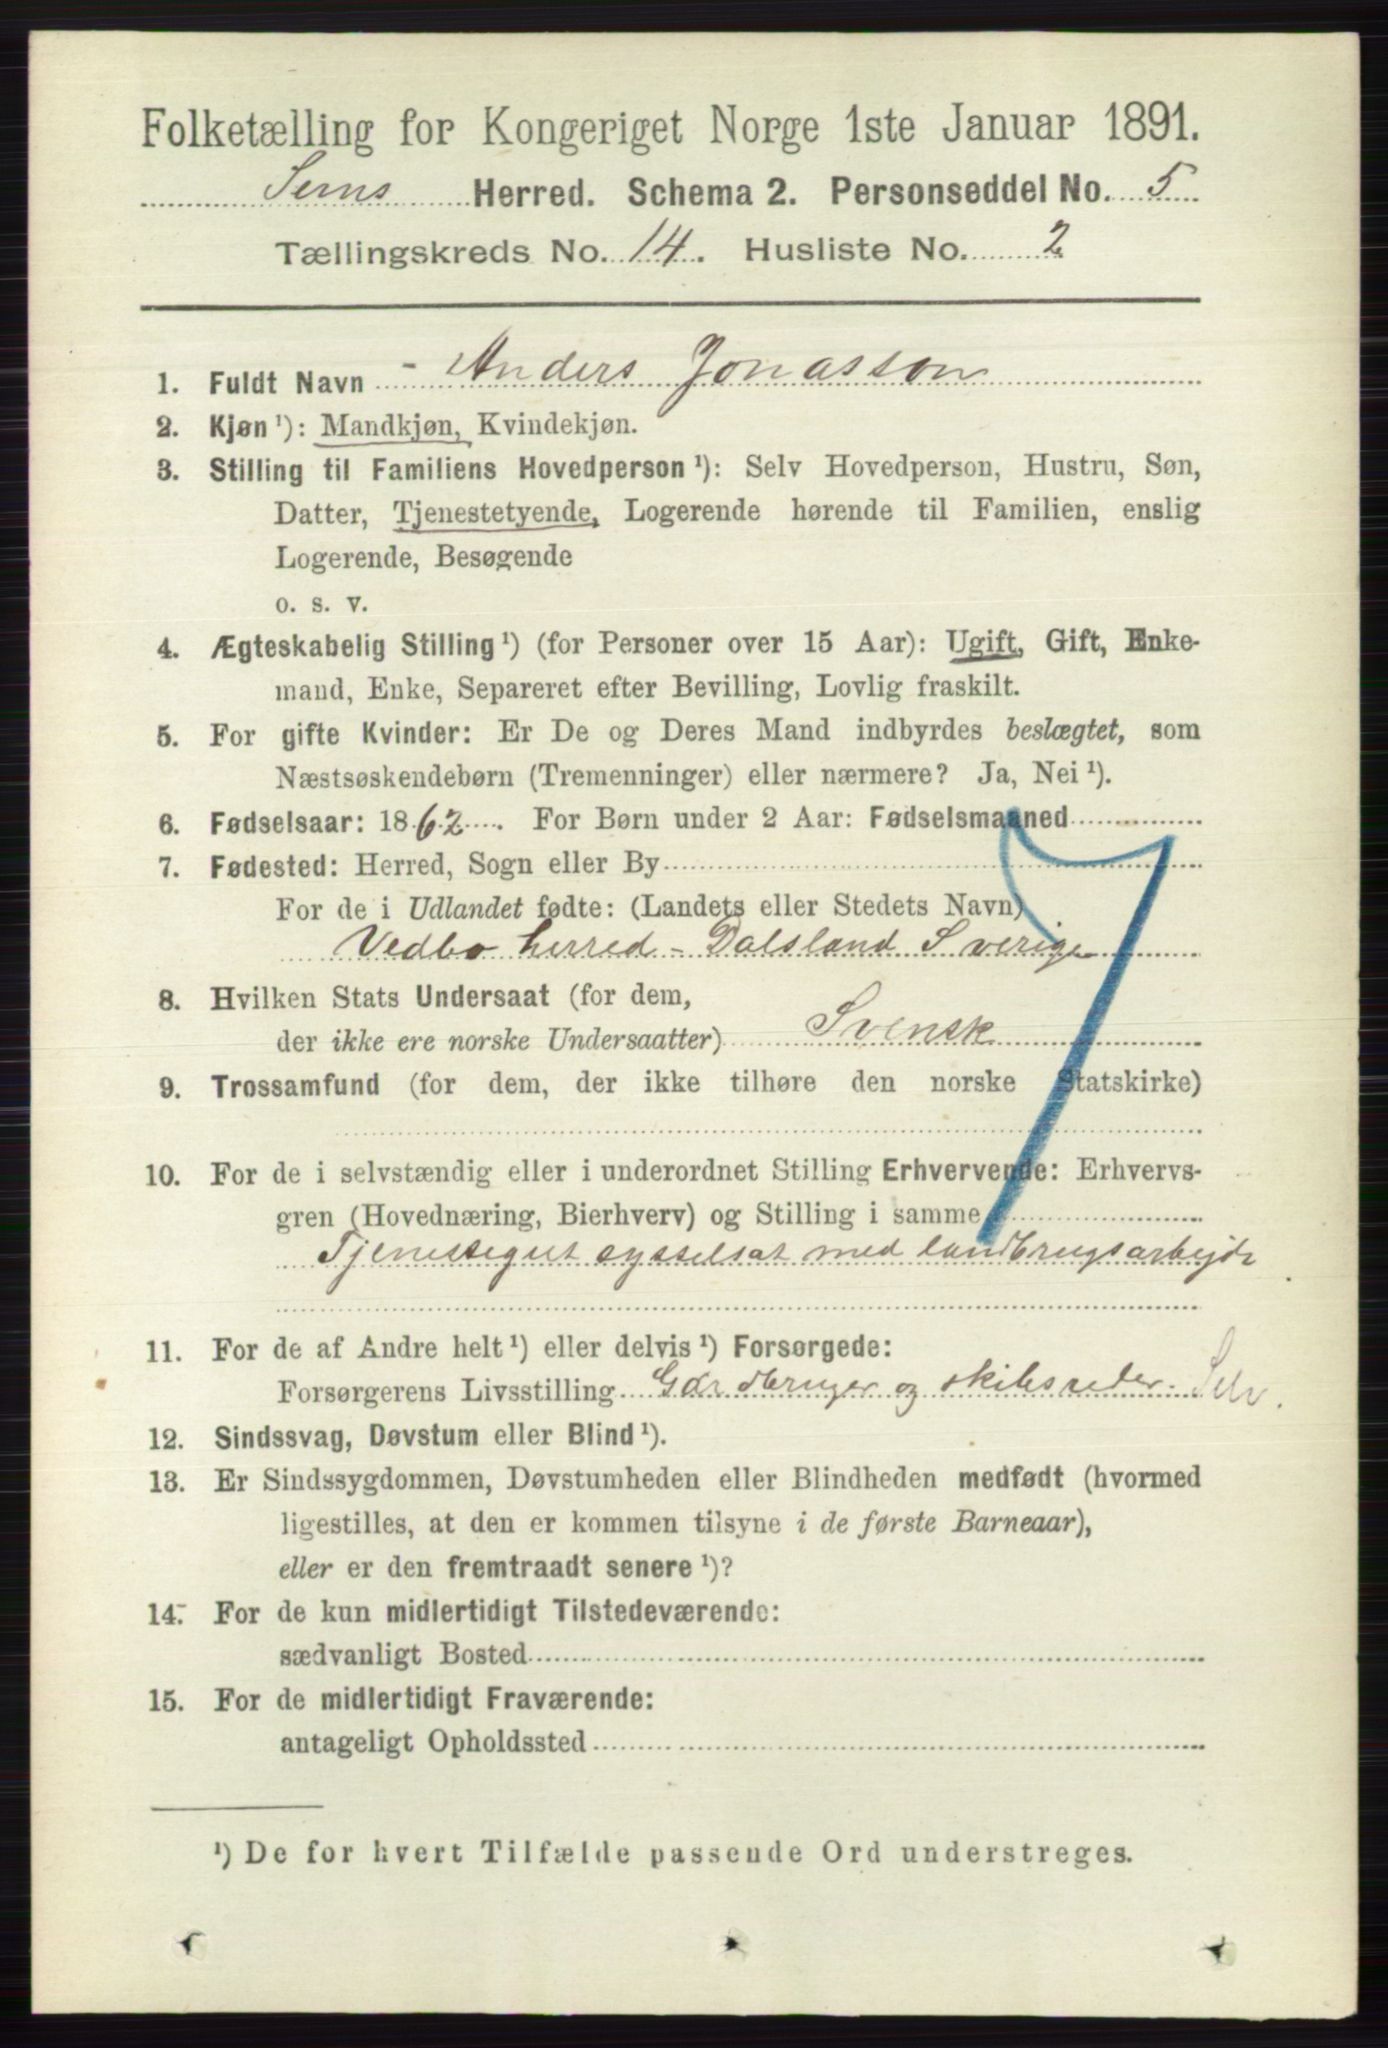 Folketælling for Kongeriget Norge 1ste Januar 1891.
Sems Herred. Schema 2. Personseddel No. 5
Tællingskreds No. 14. Husliste No. 2
1. Fuldt Navn - Anders Jonasson
2. Kjøn ¹): Mandkjøn, Kvindekjøn.
3. Stilling til Familiens Hovedperson ¹): Selv Hovedperson, Hustru, Søn,
Datter, Tjenestetyende, Logerende hørende til Familien, enslig
Logerende, Besøgende
o. s. v.
4. Ægteskabelig Stilling ¹) (for Personer over 15 Aar): Ugift, Gift, Enke-
mand, Enke, Separeret efter Bevilling, Lovlig fraskilt.
5. For gifte Kvinder: Er De og Deres Mand indbyrdes beslægtet, som
Næstsøskendebørn (Tremenninger) eller nærmere? Ja, Nei ¹).
6. Fødselsaar: 1862. For Børn under 2 Aar: Fødselsmaaned
7. Fødested: Herred, Sogn eller By
For de i Udlandet fødte: (Landets eller Stedets Navn)
Vedbo herred - Dalsland Sverige
8. Hvilken Stats Undersaat (for dem,
der ikke ere norske Undersaatter) Svensk
9. Trossamfund (for dem, der ikke tilhøre den norske Statskirke)
10. For de i selvstændig eller i underordnet Stilling Erhvervende: Erhvervs-
gren (Hovednæring, Bierhverv) og Stilling i samme
Tjenestegut sysselsat med landbrugsarbejde
11. For de af Andre helt ¹) eller delvis ¹) Forsørgede:
Forsørgerens Livsstilling Gdr dbruger og skibsreder. Selv.
12. Sindssvag, Døvstum eller Blind ¹).
13. Er Sindssygdommen, Døvstumheden eller Blindheden medfødt (hvormed
ligestilles, at den er kommen tilsyne i de første Barneaar),
eller er den fremtraadt senere ¹)?
14. For de kun midlertidigt Tilstedeværende:
sædvanligt Bosted
15. For de midlertidigt Fraværende:
antageligt Opholdssted
¹) De for hvert Tilfælde passende Ord understreges.